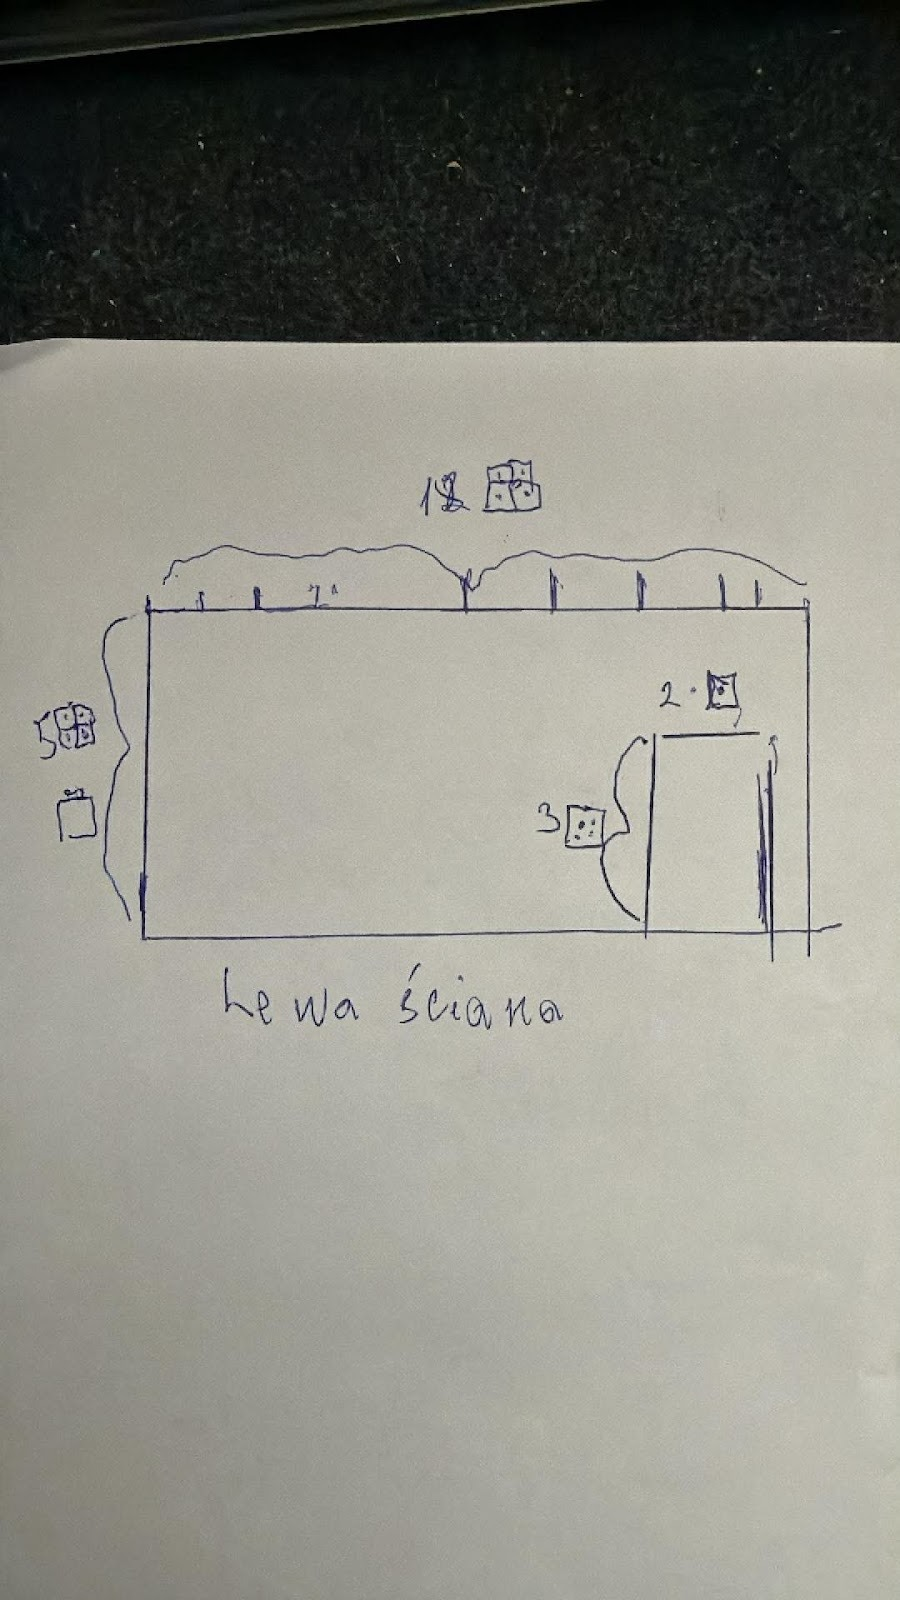 2 ·
5
3
Lewa ściana